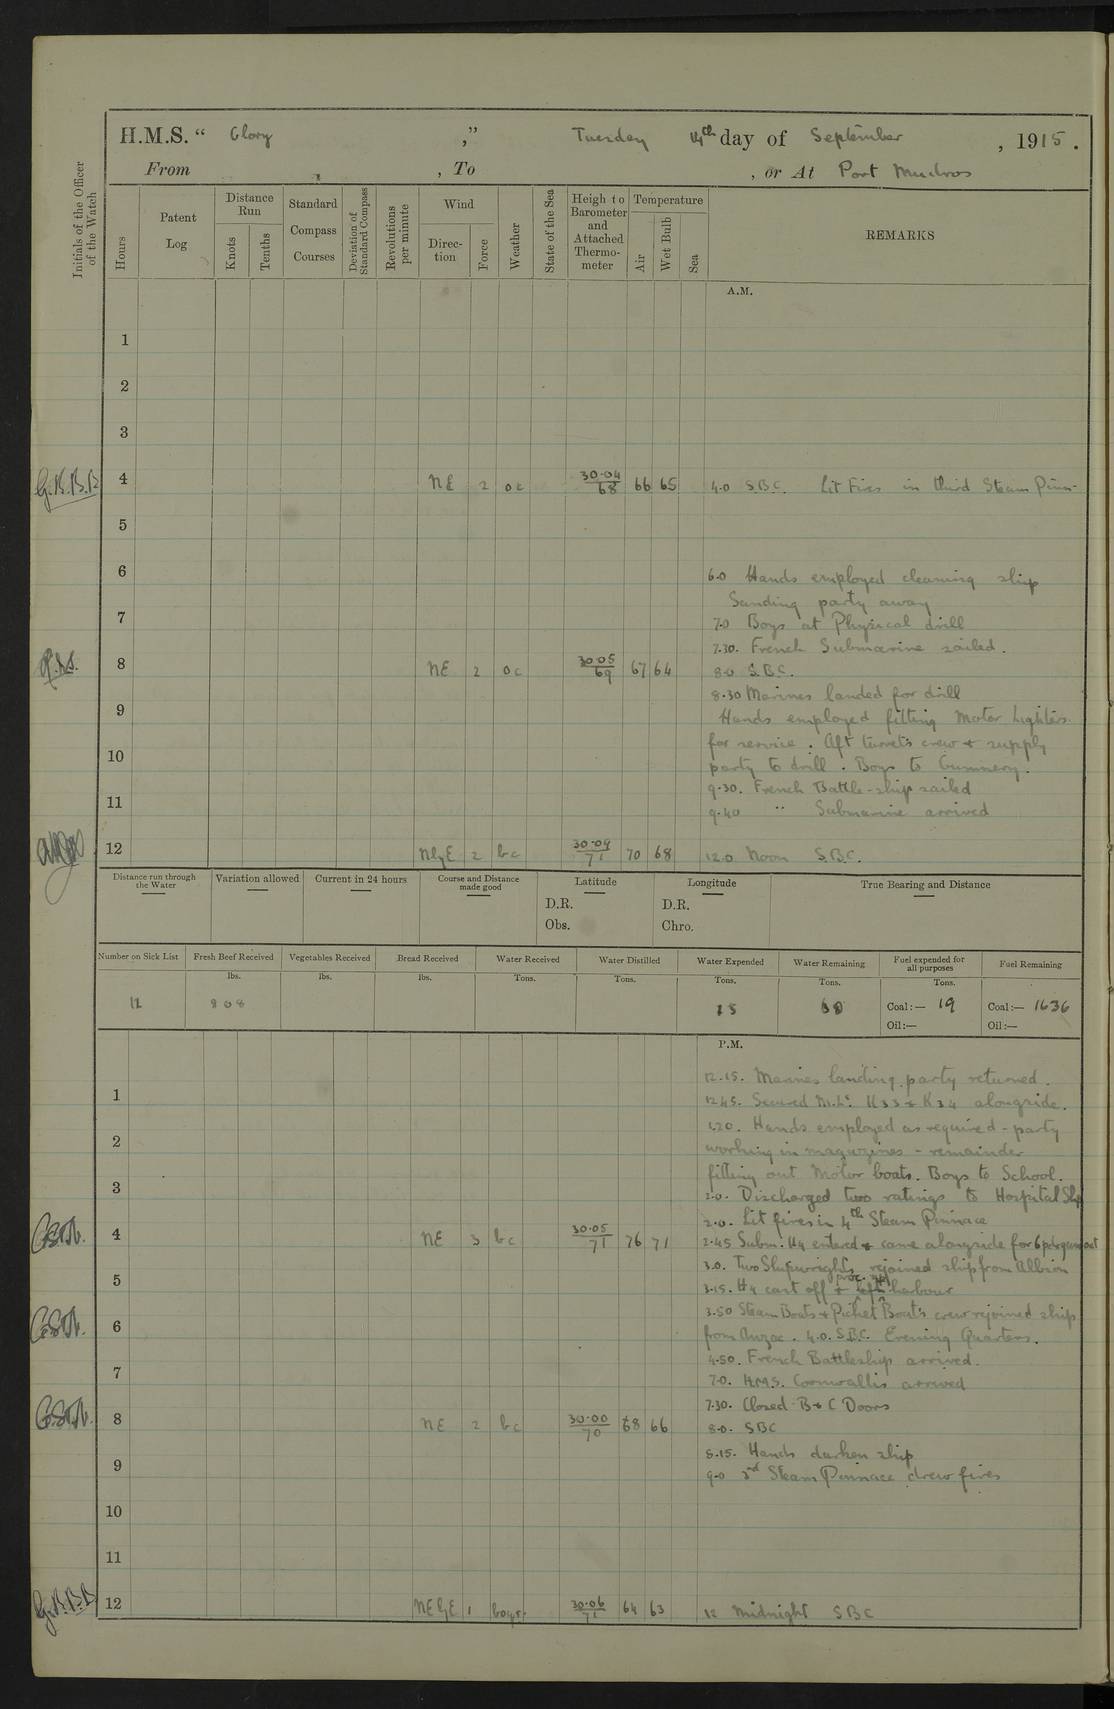 H.M.S. “ Glory ,” Tuesday 14th day of September , 1915 .
From , To , or At Port Mudros
Initials of the Officer of the Watch
Hours
Patent Log
Distance Run
Knots
Tenths
Standard Compass Courses
Deviation of Standard Compass
Revolutions per minute
Wind
Direction
Force
Weather
State of the Sea
Heigh to Barometer and Attached Thermometer
Temperature
Air
Wet Bulb
Sea
REMARKS
A.M.
1
2
3
G.B.B.B 4 NE 2 oc 30.04/68 66 65 4.0 S.B.C. Lit Fires in third Steam Pinn-
5
6 6.0 Hands employed cleaning ship
Sanding party away
7 7.0 Boys at Physical drill
7.30. French Submarine sailed.
8 NE 2 oc 30.05/69 67 64 8.0 S.B.C.
8.30 Marines landed for drill
9 Hands employed fitting Motor Lighters
for service. Aft turrets crew + supply
10 party to drill. Boys to Gunnery.
9.30. French Battle-ship sailed
11 9.40 " Submarine arrived
12 NbyE 2 bc 30.09/71 70 68 12.0 Noon S.B.C.
Distance run through the Water
Variation allowed
Current in 24 hours
Course and Distance made good
Latitude
D.R.
Obs.
Longitude
D.R.
Chro.
True Bearing and Distance
Number on Sick List
Fresh Beef Received
Vegetables Received
Bread Received
Water Received
Water Distilled
Water Expended
Water Remaining
Fuel expended for all purposes
Fuel Remaining
lbs. lbs. lbs. Tons. Tons. Tons. Tons. Tons.
12 808 Coal:— 19 Coal:— 1636
Oil:— Oil:—
P.M.
12.15. Marines landing party returned.
1 12.45. Secured M.Ls. K33 + K34 alongside.
1.20. Hands employed as required - party
2 working in magazines - remainder
fitting out Motor boats. Boys to School.
3 2.0. Discharged two ratings to Hospital Ship
2.0. Lit fires in 4th Steam Pinnace
G.S.N. 4 NE 3 bc 30.05/71 76 71 2.45 Subm. H4 entered + came alongside for 6pdr gun out
3.0. Two Shipwrights rejoined ship from Albion
5 3.15. H4 cast off + left harbour
3.50 Steam Boats + Picket Boat's crew rejoined ship
G.S.N. 6 from Anzac. 4.0. S.B.C. Evening Quarters.
4.50. French Battleship arrived.
7 7.0. H.M.S. Cornwallis arrived
7.30. Closed B + C Doors
G.S.N. 8 NE 2 bc 30.00/70 68 66 8.0. SBC
8.15. Hands darken ship
9 9.0 3rd Steam Pinnace drew fires
10
11
G.B.B.B 12 NEbyE 1 30.06/71 64 63 12 Midnight SBC